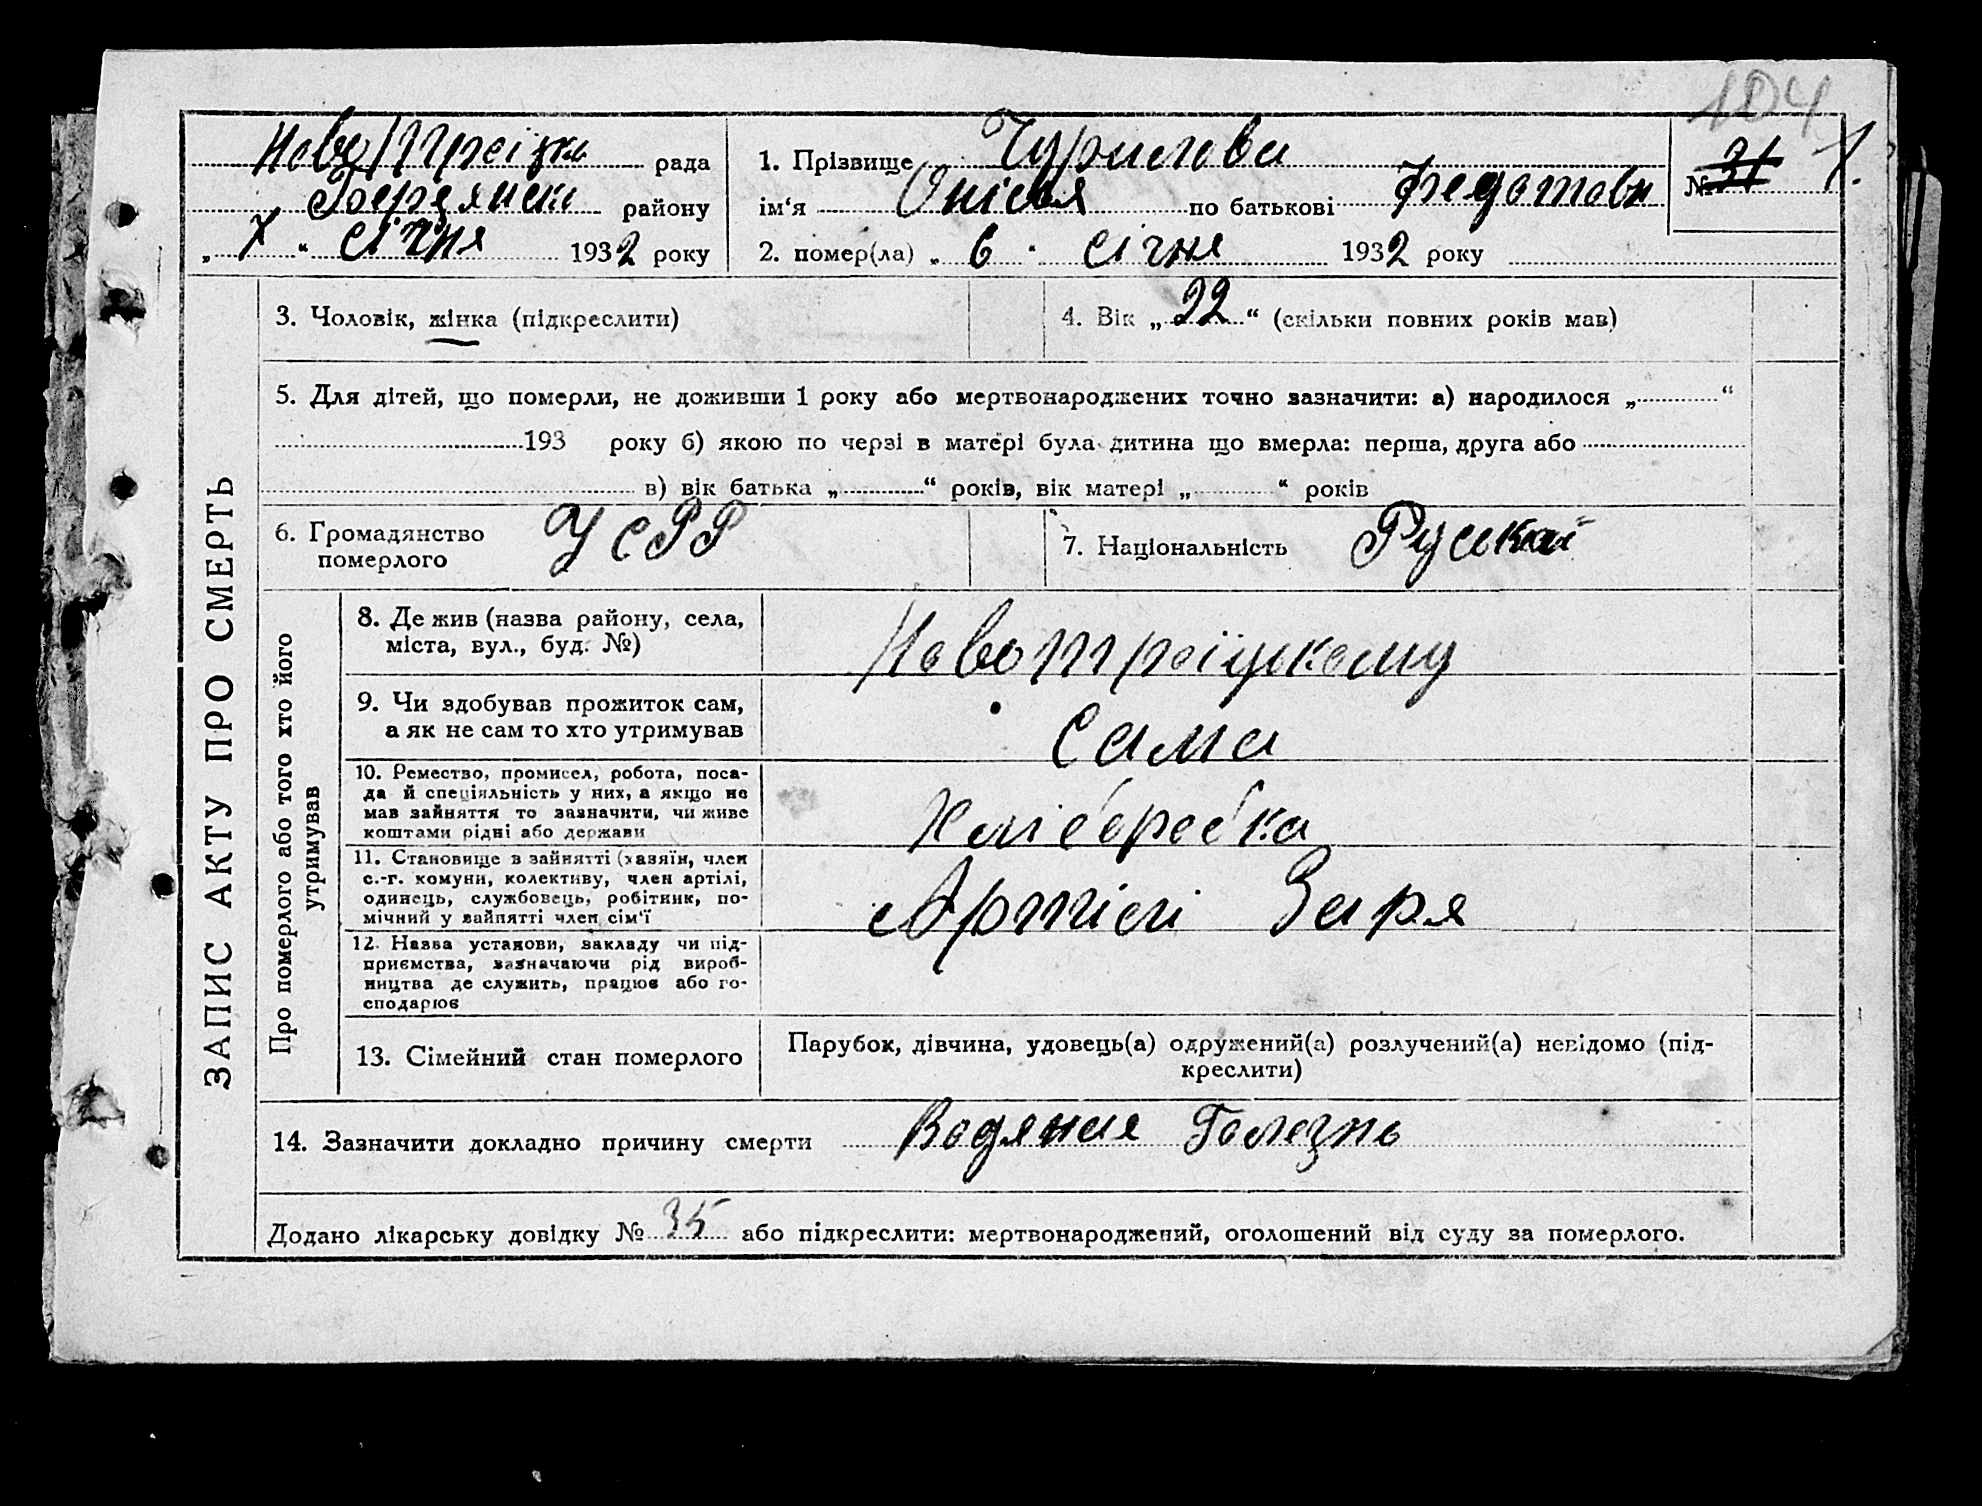 104
Ново Троіцка рада
Бердянськ району
„ 7 “ січня 1932 року
1. Прізвище Чурилова
ім‘я Онісія по батькові Федотовн
№ 31 7.
2. помер(ла) „ 6 “ січня 1932 року
ЗАПИС АКТУ ПРО СМЕРТЬ
3. Чоловік, жінка (підкреслити)
4. Вік „ 22 “ (скільки повних років мав)
5. Для дітей, що померли, не доживши 1 року або мертвонароджених точно зазначити: а) народилося „ “
193 року б) якою по черзі в матері була дитина що вмерла: перша, друга або
в) вік батька „ “ років, вік матері „ “ років
6. Громадянство
померлого
УСРР
7. Національність Руський
Про померлого або того хто його
утримував
8. Де жив (назва району, села,
міста, вул., буд. №)
Новотроїцькому
9. Чи здобував прожиток сам,
а як не сам то хто утримував
Сама
10. Ремество, промисел, робота, поса-
да й спеціяльність у них, а якщо не
мав зайняття то зазначити, чи живе
коштами рідні або держави
Хліборобка
11. Становище в зайнятті (хазяїн, член
с.-г. комуни, колективу, член артілі,
одинець, службовець, робітник, по-
мічний у зайнятті член сім‘ї
Артілі Заря
12. Назва установи, закладу чи під-
приємства, зазначаючи рід вироб-
ництва де служить, працює або го-
сподарює
13. Сімейний стан померлого
Парубок, дівчина, удовець(а) одружений(а) розлучений(а) невідомо (під-
креслити)
14. Зазначити докладно причину смерти Водяная Болезнь
Додано лікарську довідку № 35 або підкреслити: мертвонароджений, оголошений від суду за померлого.